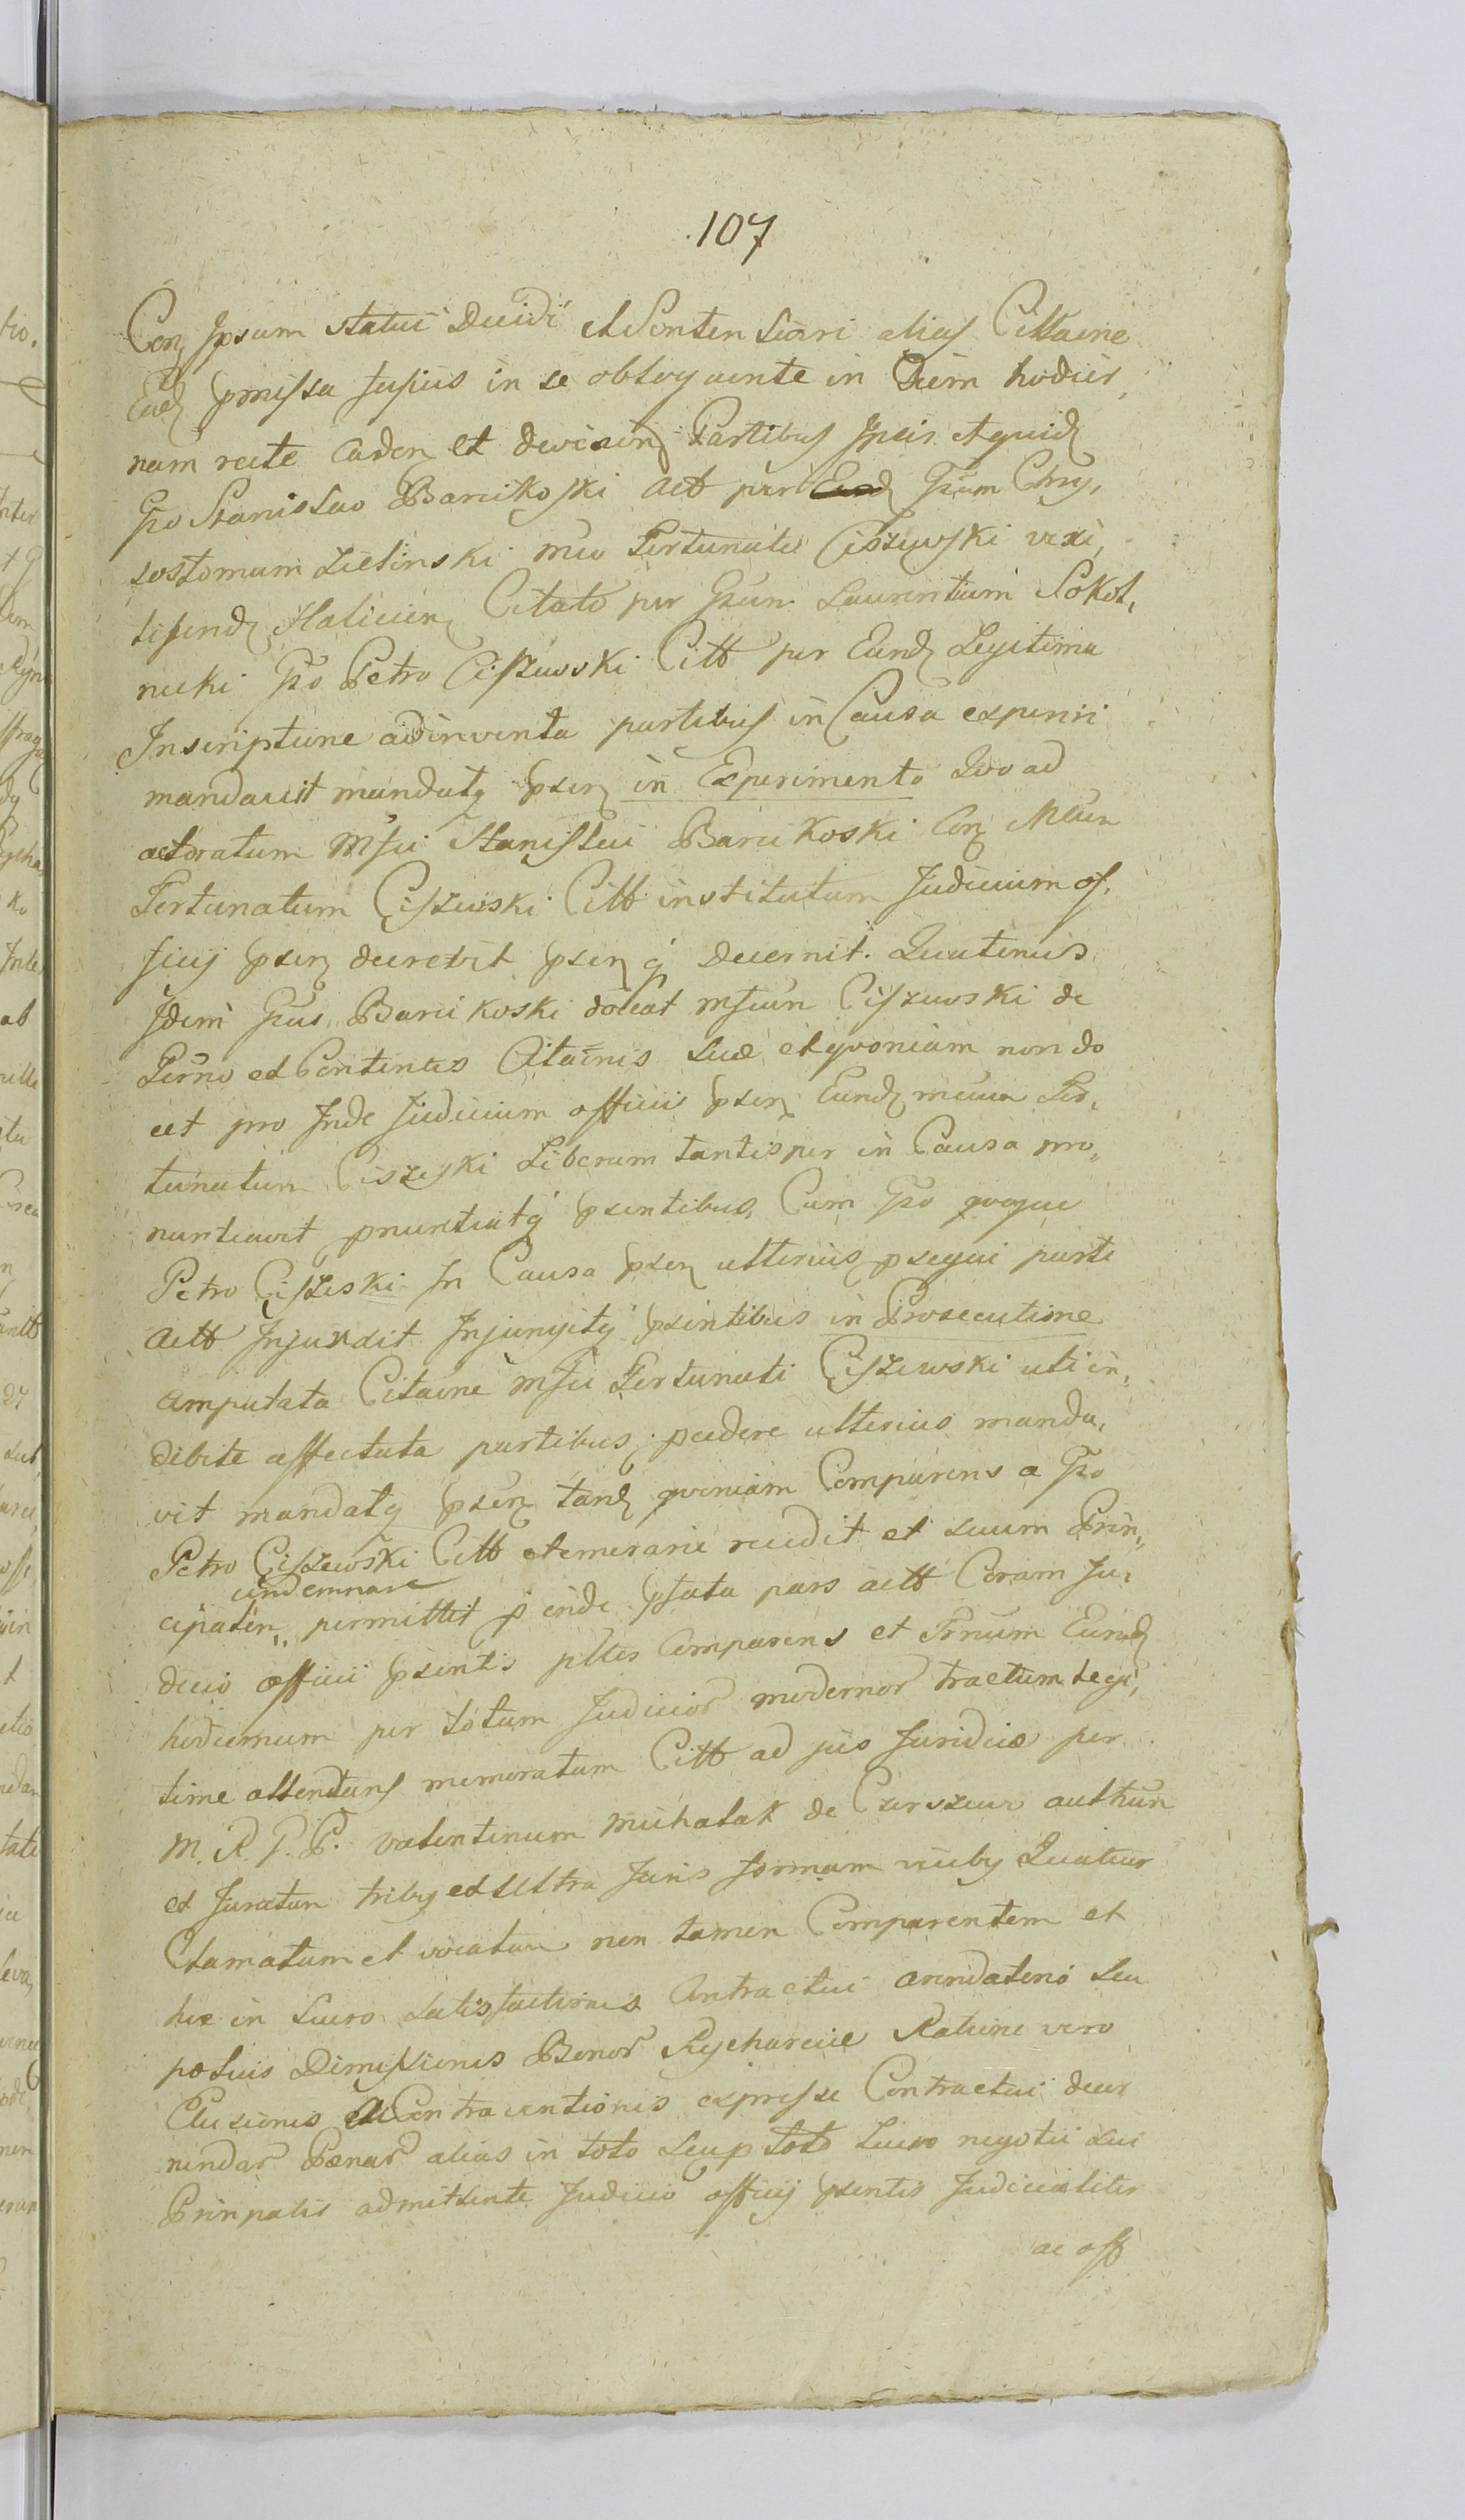 107
Con Ipsum statui Decidi et Sententiari alias Cittaōne
Ead pmissa fusius in se obloquente in Diem hodier,
nam recte caden et decisen Partibus Ipsis et quid
Gso Stanislao Barcikoski Act per Gsum Chry,
sostomum Zielinski Mco Fortunato Ciszewski vexi,
lifend Halicien Citato per Gsum Laurentium Sokol,
nicki Gso Petro Ciszewski Citt per Eund Legitima
Inscriptione adinventa partibus in Causa experiri
mandavit mandatq psen in Experimento Quo ad
actoratum Mfci Stanislai Barcikoski Con Mcum
Fortunatum Ciszewski Citt institutum Judicium of,
ficij psen decrevit psen q Decernit. Quatenus
Idem Gsus Barcikoski doceat Mfcum Ciszewski de
Termo et Contentis Citaōnis suae et quoniam non do
cet pro Inde Judicium officii psen Eund mcum For,
tunatum Ciszeski Liberum tantisper in Causa pro,,
nuntiavit pnuntiatq psentibus, Cum Gso quoque
Petro Ciszeski In Causa psen ulterius psequi parti
Act Injunxit Injungitq psentibus in Prosecutione
amputata Citaōne Mfci Fortunati Ciszewski uti in,
debite affectata partibus pcedere ulterius manda,
vit mandatq psen tand quoniam Comparens a Gso
Petro Ciszewski Citt et temerarie recedit et suum Prin,,
cipalen,, condemnare permittit p inde psata pars actt Coram Ju,
dicio officii psentis pltes Comparens et Trnum Eund
hodiernum per totum Judicior modernor tractum legi,
time attendens memoratum Citt ad jus Juridice per
M. R. P. P. Valentinum Michalak de authun
et Juratum tribq et Ultra Juris formam vicibq Quatuor
Clamatum et vocatum non tamen Comparentem et
hic in Lucro satisfactionis Contractui arendatorio seu
potius Dimissionis Bonor Rycharcice Ratione vero
Elusionis Contraventionis expresse Contractui decer
nendar Paenar alias in toto seu p toto Lucro negotii sui
Prinpalis admittente Judicio officij psentis Judicialiter
ac off